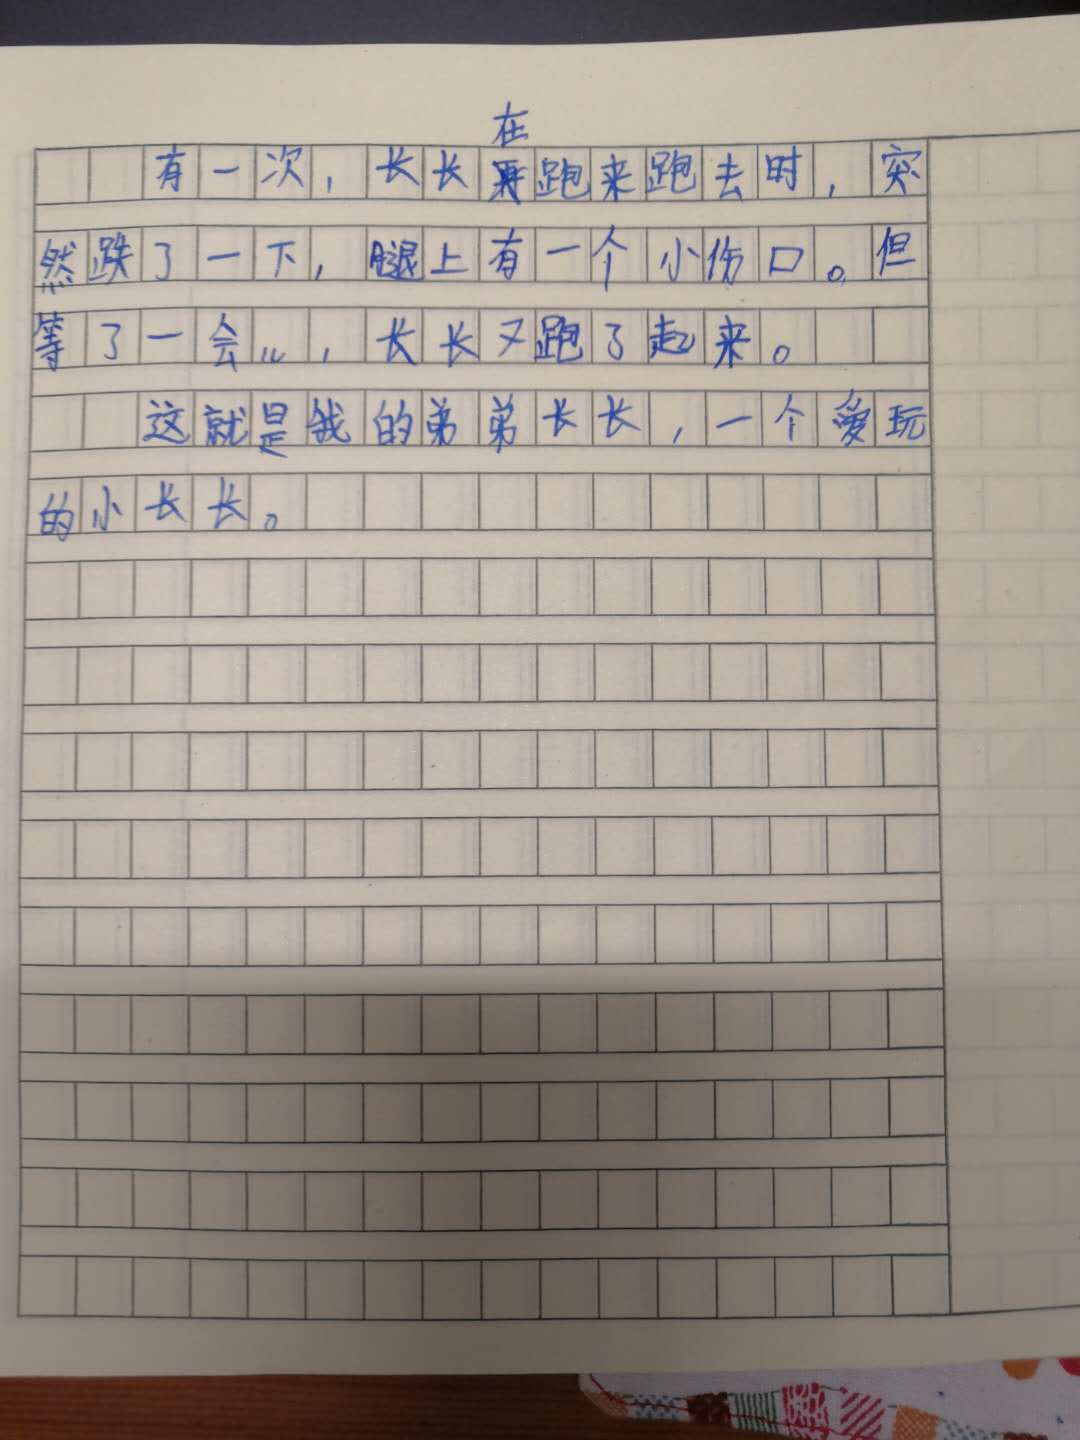 在
有一次，长长再跑来跑去时，突
然跌了一下，腿上有一个小伤口。但
等了一会儿，长长又跑了起来。
这就是我的弟弟长长，一个爱玩
的小长长。